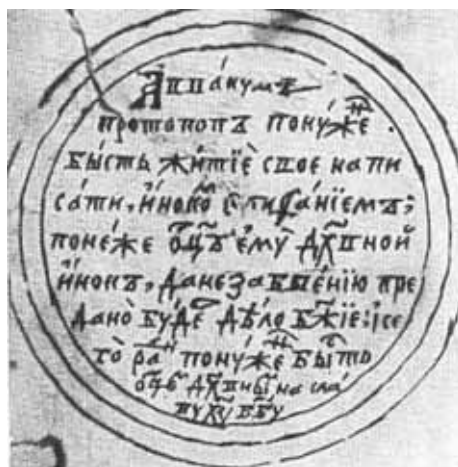 Авва́кумъ
протопопъ понꙋ́жеⷩ҇ .
бы́сть жи́тїѐ свое напи
са́ти, и́нокоⷨ҇ епифа́нїемъ;
поне́же ѻц҃ъ є҆мꙋ̀ дх҃вной
и́нокъ, да не забве́нїю пре
дано̀ бꙋ́деⷮ дѣ́ло бж҃їе: і се
го̀ раⷣ понꙋ́жеⷩ҇ бы́ть
ѻц҃ѣⷨ дх҃вныⷨ на сла́
вꙋ хꙋ҃